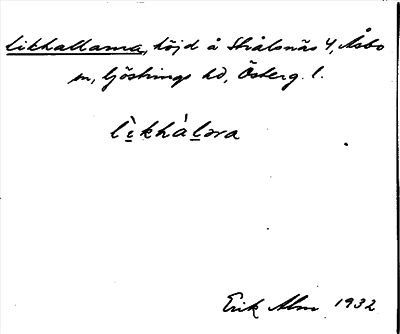 Likhallarna, höjd å Strålsnäs 4, Åsbo
sn, Göstrings hd, Österg. l.
lìkhàlǝra
Erik Alm 1932